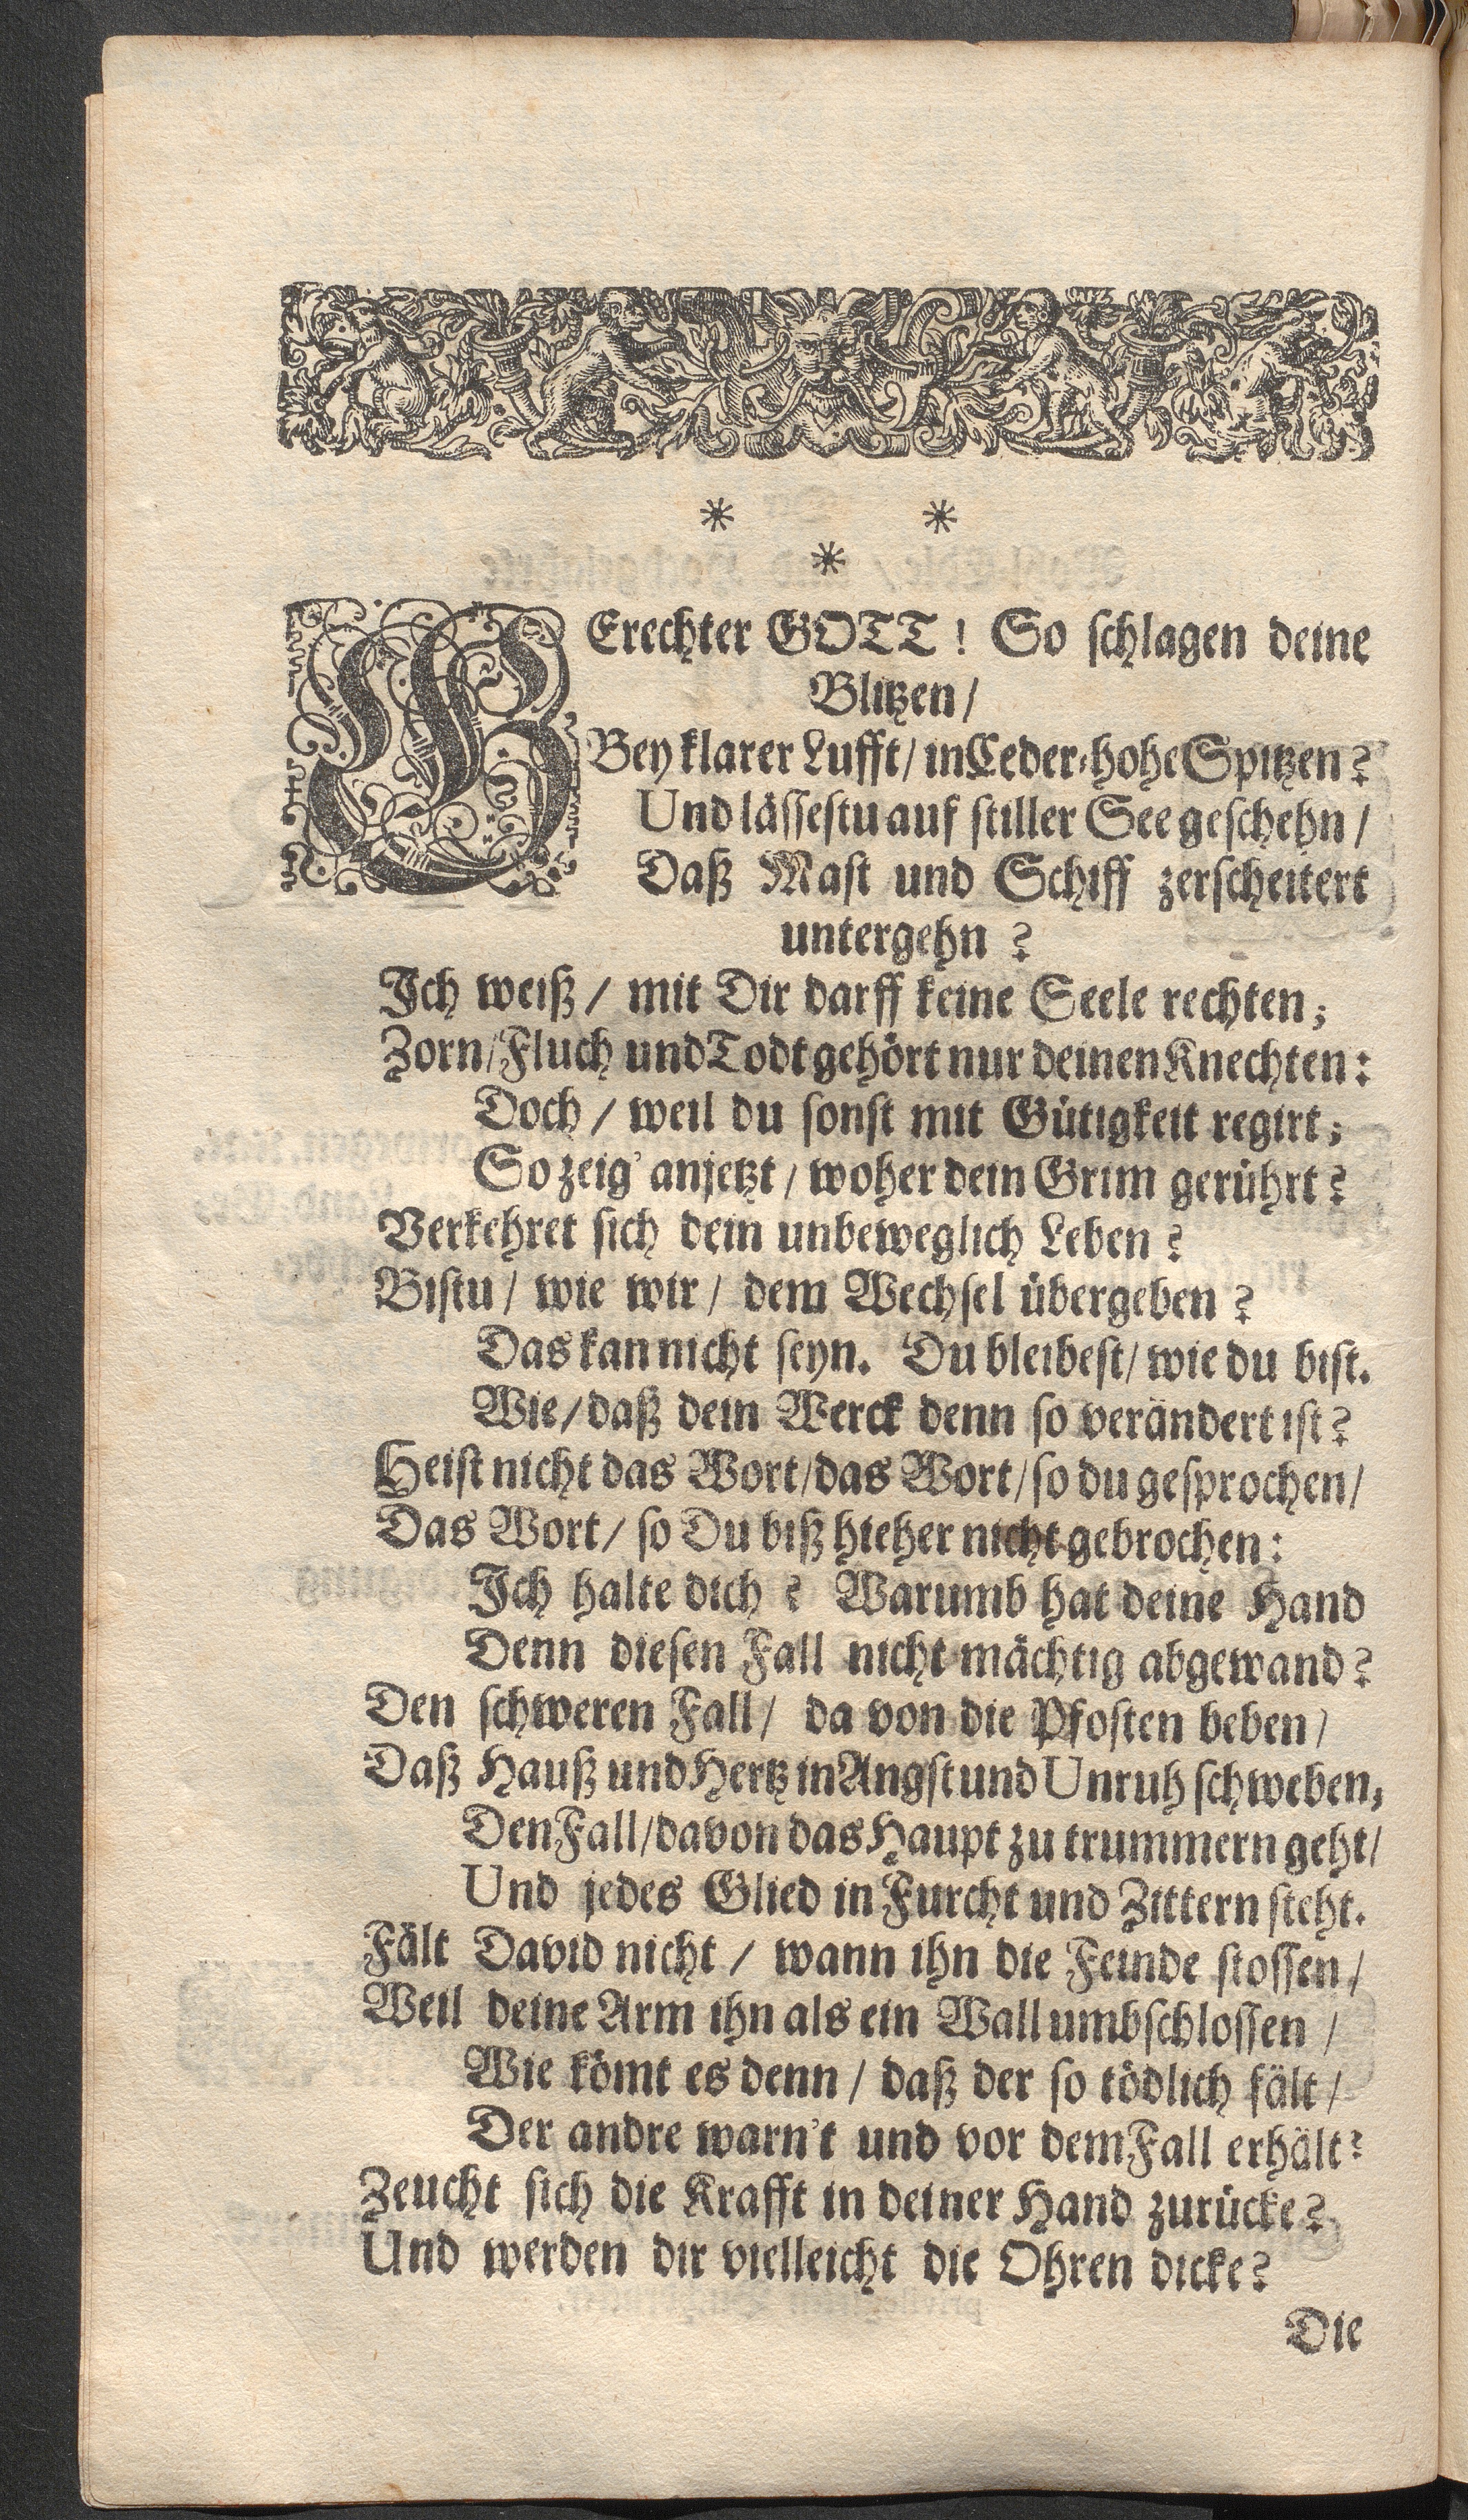 * *
*
GErechter GOTT! So schlagen deine
Blitzen/
Bey klarer Lufft/ in Ceder-hohe Spitzen?
Und lässestu auf stiller See geschehn/
Daß Mast und Schiff zerscheitert
untergehn?
Ich weiß/ mit Dir darff keine Seele rechten;
Zorn/ Fluch und Todt gehört nur deinen Knechten:
Doch/ weil du sonst mit Gütigkeit regirt;
So zeig' anjetzt/ woher dein Grim gerührt?
Verkehret sich dein unbeweglich Leben?
Bistu/ wie wir/ dem Wechsel übergeben?
Das kan nicht seyn. Du bleibest/ wie du bist.
Wie/ daß dein Werck denn so verändert ist?
Heist nicht das Wort/ das Wort/ so du gesprochen/
Das Wort/ so Du biß hieher nicht gebrochen:
Ich halte dich? Warumb hat deine Hand
Denn diesen Fall nicht mächtig abgewand?
Den schweren Fall/ da von die Pfosten beben/
Daß Hauß und Hertz in Angst und Unruh schweben;
Den Fall/ davon das Haupt zu trummern geht/
Und jedes Glied in Furcht und Zittern steht.
Fält David nicht/ wann ihn die Feinde stossen/
Weil deine Arm ihn als ein Wall umbschlossen/
Wie kömt es denn/ daß der so tödlich fält/
Der andre warn't und vor dem Fall erhält?
Zeucht sich die Krafft in deiner Hand zurücke?
Und werden dir vielleicht die Ohren dicke?
Die